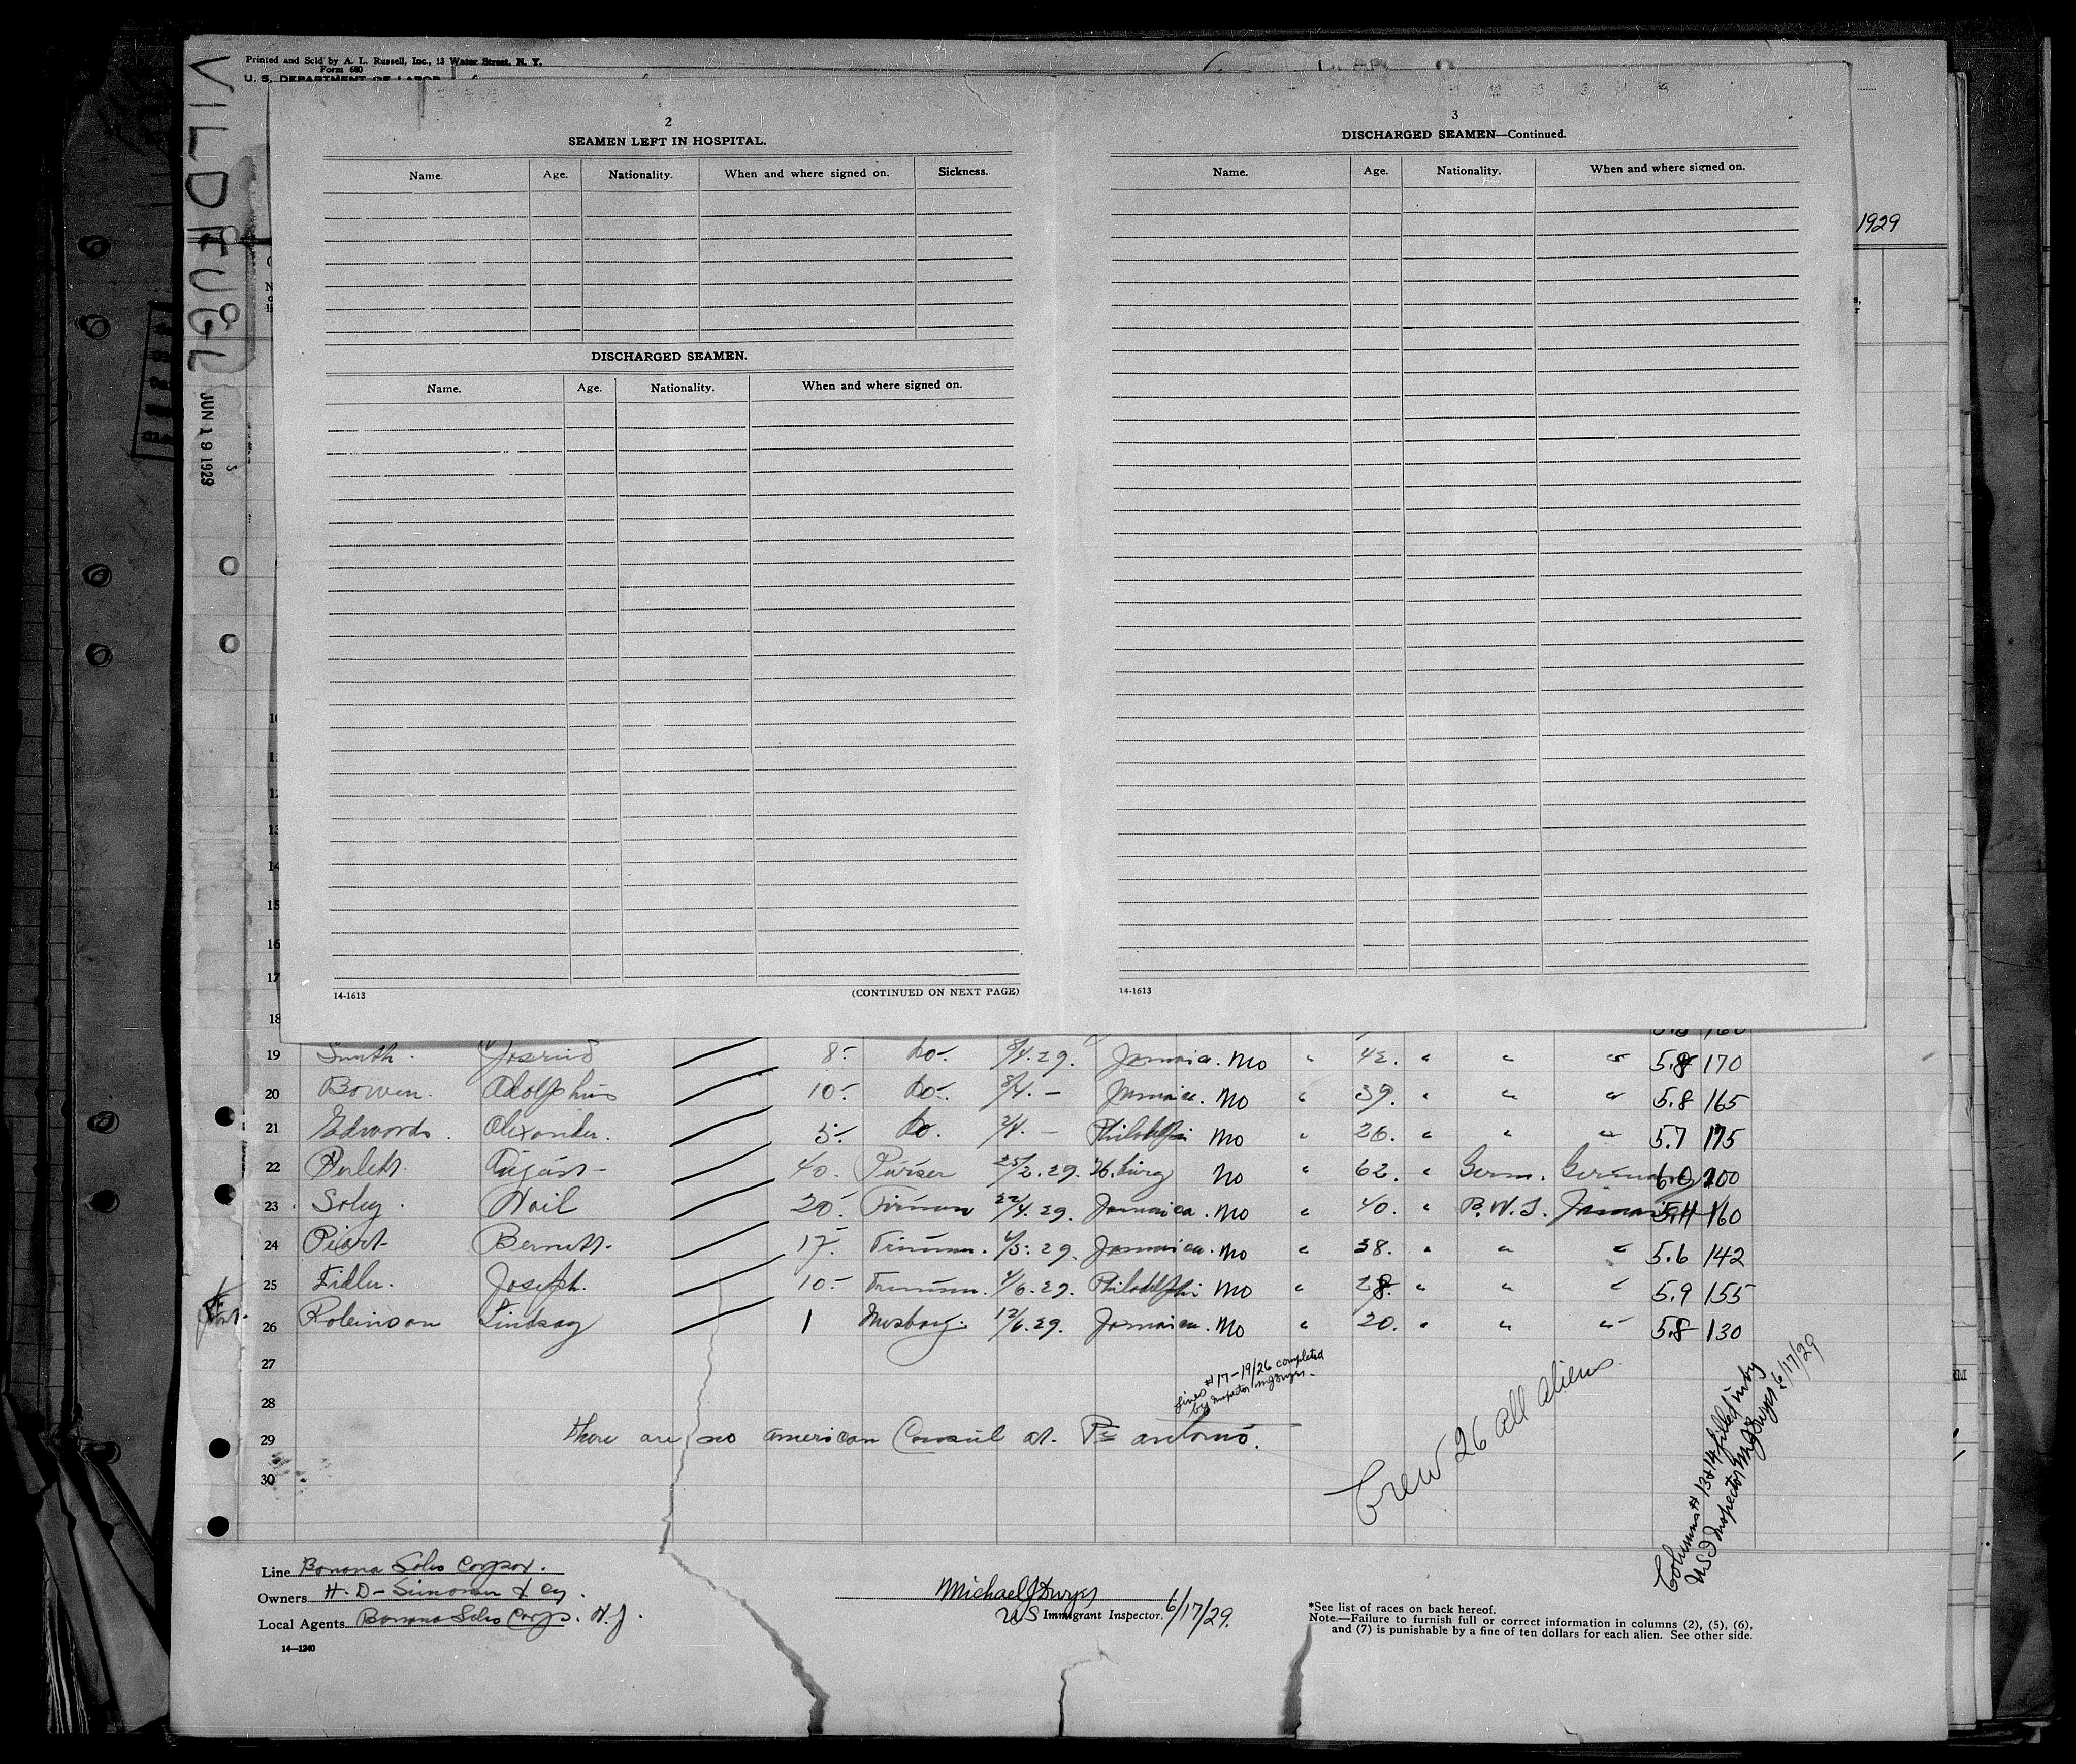 Printed and Sold by A. L. Russell, Inc., 13 Water Street, N. Y.
Form 680
U. S. DEPARTMENT OF LABOR
VILDFUGL
JUN 19 1929
1929
2
SEAMEN LEFT IN HOSPITAL.
Name. Age. Nationality. When and where signed on. Sickness.
DISCHARGED SEAMEN.
Name. Age. Nationality. When and where signed on.
14-1613 (CONTINUED ON NEXT PAGE)
3
DISCHARGED SEAMEN—Continued.
Name. Age. Nationality. When and where signed on.
14-1613
10
11
12
13
14
15
16
17
18
19 Smith. 8- Do- 29. Jamaica. No " 42. " " " 5.8 170
20 Bowen. Adolphus 10- Do-. — Jamaica. No " 39. " " " 5.8 165
21 Edwards. Alexander. 5- Do. — Philadelphi No " 26. " " " 5.7 175
22 August- 40. Purser 25/2.29. H.burg No " 62. " Germ. Germany 6.0 200
23 Noil 20- Firman 22/4.29. Jamaica. No " 40. " B.W.I. Jamaica 5.11 160
24 17. Trimm. 29. Jamaica. No " 38. " " " 5.6 142
25 Fidler. Joseph. 10- Trimm. /6.29. Philadelphi No " 28. " " " 5.9 155
26 Robinson Lindsay 1 Mesboy. 12/6.29. Jamaica. No " 20. " " " 5.8 130
27
28
29
30
Lines #17-19/26 completed
by Inspector
There are no american Consul at. Pt antonio.
Crew 26 all aliens
Columns # 13 & 14 filled in by
US I Inspector 6/17/29
Line Banana Sales Corpor.
Owners H. D-
Local Agents Banana Sales Corp.
14—1240
Michael J
US Immigrant Inspector. 6/17/29.
*See list of races on back hereof.
Note.—Failure to furnish full or correct information in columns (2), (5), (6),
and (7) is punishable by a fine of ten dollars for each alien. See other side.